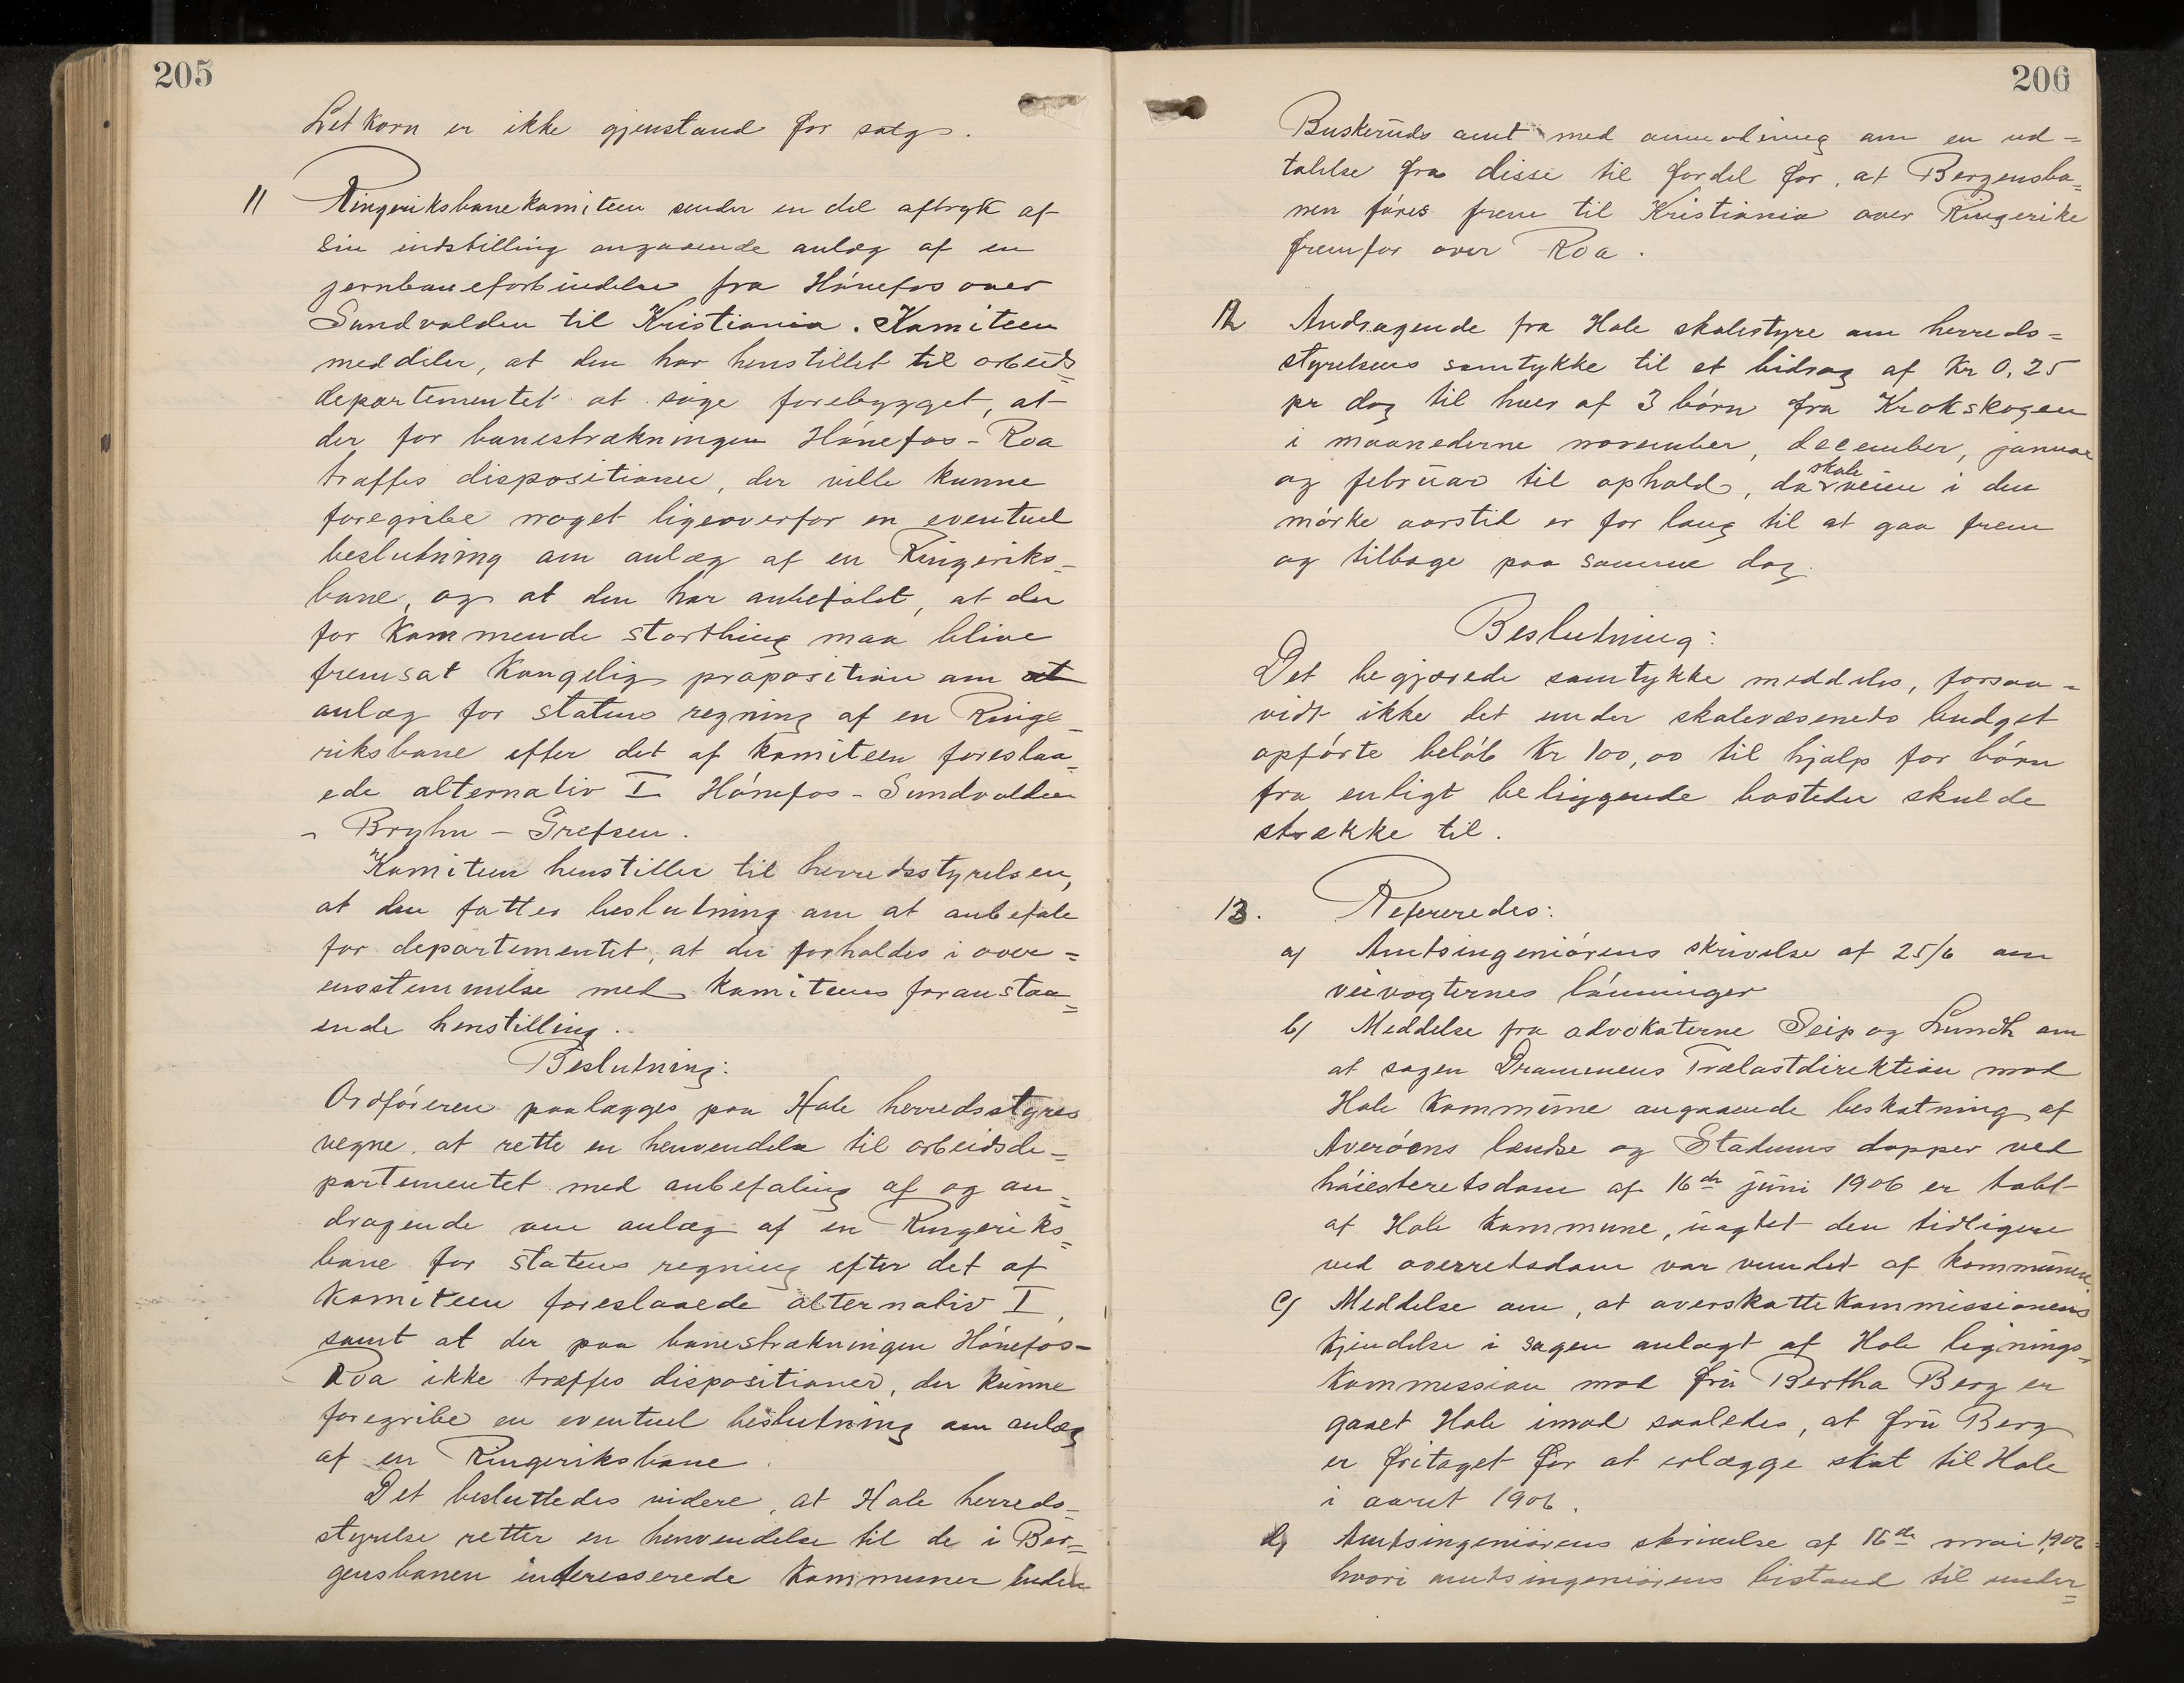 205
Let korn er ikke gjenstand for salg.
11 Ringeriksbanekomiteen sender en del aftryk af
sin indstilling angaaende anlæg af en
jernbaneforbindelse fra Hönefos over
Sundvolden til Kristiania. Komiteen
meddeler, at den har henstillet til arbeids=
departementet at söge forebygget, at
der for banestrækningen Hönefos-Roa
træffes dispositioner, der ville kunne
foregribe noget ligeoverfor en eventuel
beslutning om anlæg af en Ringeriks-
bane, og at den har anbefalet, at der
for kommende storthing maa blive
fremsat kongelig proposition om at
anlæg for statens regning af en Ringe-
riksbane efter det af komiteen foreslaa-
ede alternativ I Hönefos-Sundvolden
- Bryhn - Grefsen.
Komiteen henstiller til herredsstyrelsen,
at den fatter beslutning om at anbefale
for departementet, at der forholdes i over=
ensstemmelse med komiteens foranstaa=
ende henstilling.
Beslutning:
Ordföreren paalægges paa Hole herredsstyres
vegne at rette en henvendelse til arbeidsde=
partementet med anbefaling af og an=
dragende om anlæg af en Ringeriks=
bane for statens regning efter det af
komiteen foreslaaede alternativ I,
samt at der paa banestrækningen Hönefos-
Roa ikke træffes dispositioner, der kunne
foregribe en eventuel beslutning om anlæg
af en Ringeriksbane.
Det besluttedes videre, at Hole herreds-
styrelse retter en henvendelse til de i Ber=
gensbanen interesserede kommuner inden
206
Buskeruds amt med anmodning om en ud=
talelse fra disse til fordel for, at Bergensba=
nen föres frem til Kristiania over Ringerike
fremfor over Roa.
12 Andragende fra Hole skolestyre om herreds=
styrelsens samtykke til et bidrag af Kr 0,25
pr dag til hver af 3 börn fra Krokskogen
i maanederne november, december, januar
og februar til ophold, da skoleveien i den
mörke aarstid er for lang til at gaa frem
og tilbage paa samme dag.
Beslutning:
Det begjærede samtykke meddeles, forsaa=
vidt ikke det under skolevæsenets budget
opförte belöb Kr 100,00 til hjælp for börn
fra enligt beliggende bosteder skulde
strække til.
13. Refereredes:
a) Amtsingeniörens skrivelse af 25/6 om
veivogternes lönninger
b) Meddelse fra advokaterne Seip og Lundh om
at sagen Drammens Trælastdirektion mod
Hole kommune angaaende beskatning af
Averöens lændse og Stadums dopper ved
höiesteretsdom af 16de juni 1906 er tabt
af Hole kommune, uagtet den tidligere
ved overretsdom var vundet af kommunen
c) Meddelse om, at overskattekommissionens
kjendelse i sagen anlagt af Hole lignings-
kommission mod fru Bertha Berg er
gaaet Hole imod saaledes, at fru Berg
er fritaget for at erlægge skat til Hole
i aaret 1906.
d) Amtsingeniörens skrivelse af 16de mai 1906
hvori amtsingeniörens bistand til under=